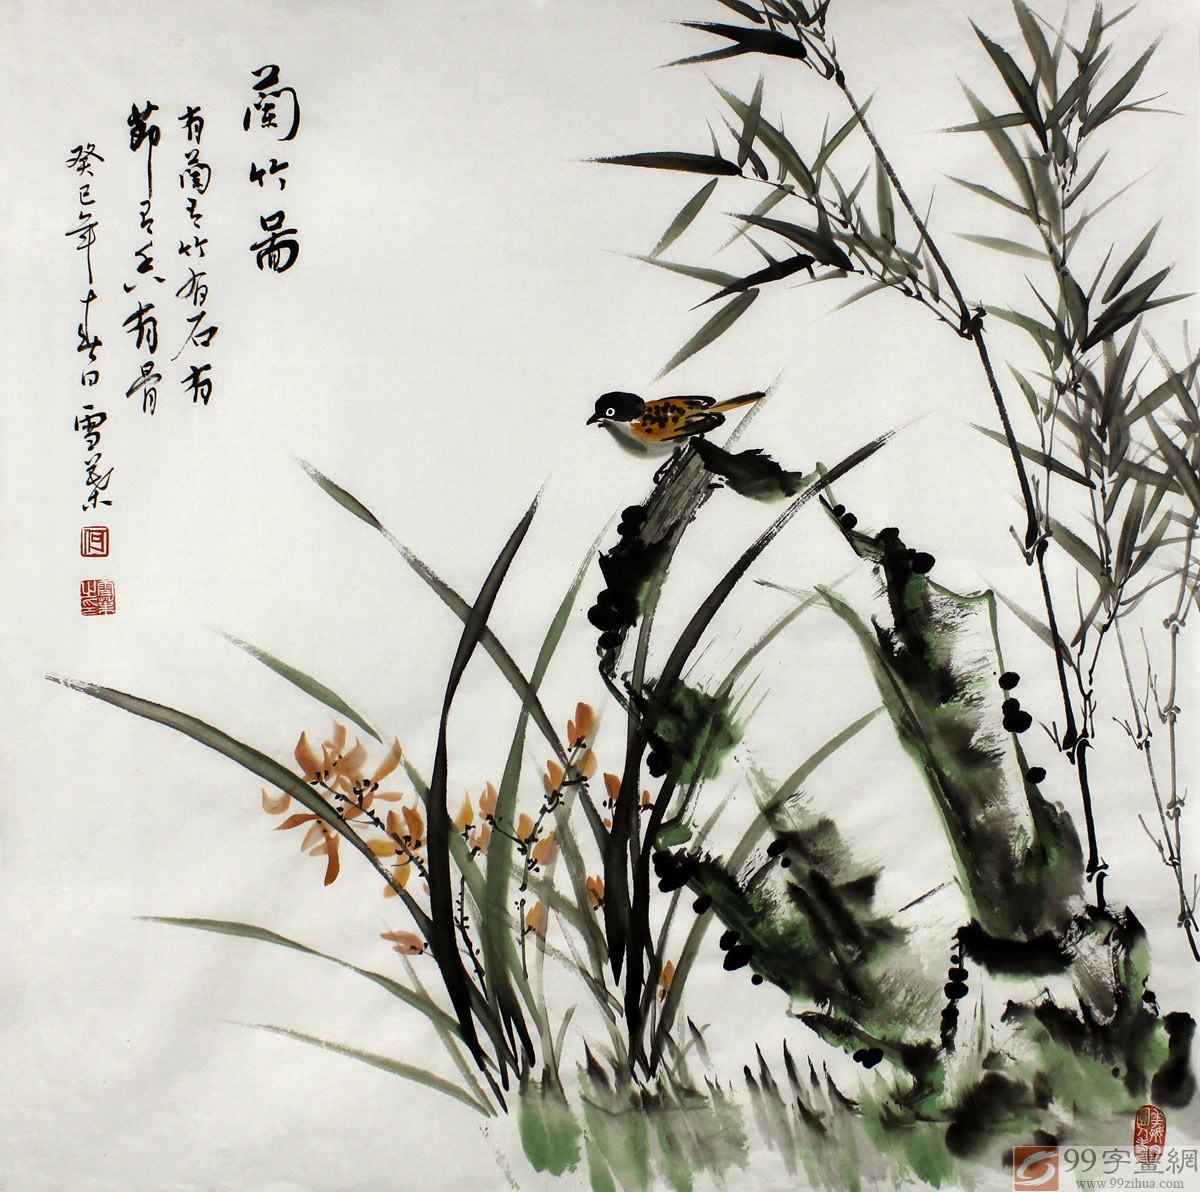 蘭竹圖
有蘭有竹有石有
節有香有骨
癸巳年春日雪葉
何
99字畫網
www.99zihua.com